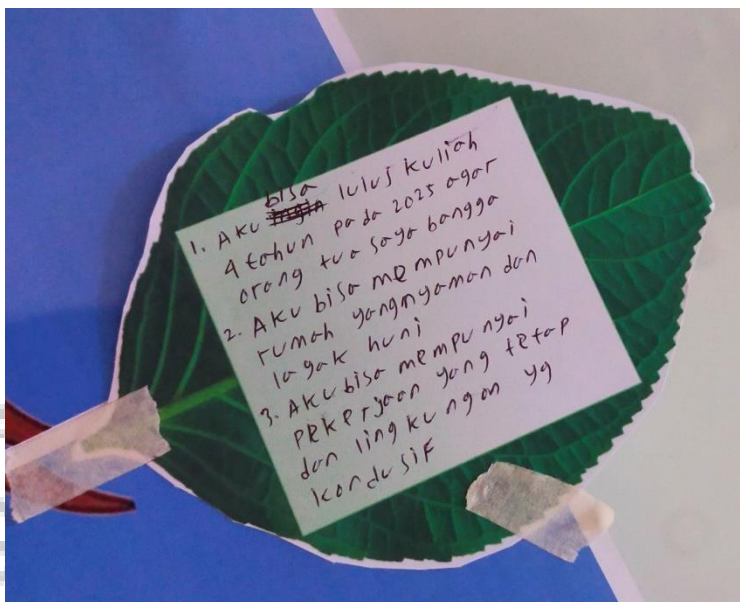 1. Aku bisa lulus kuliah
4 tahun pada 2025 agar
orang tua saya bangga
2. Aku bisa mempunyai
rumah yangnyaman dan
layak huni
3. Aku bisa mempunyai
pekerjaan yang tetap
dan lingkungan yg
kondusif